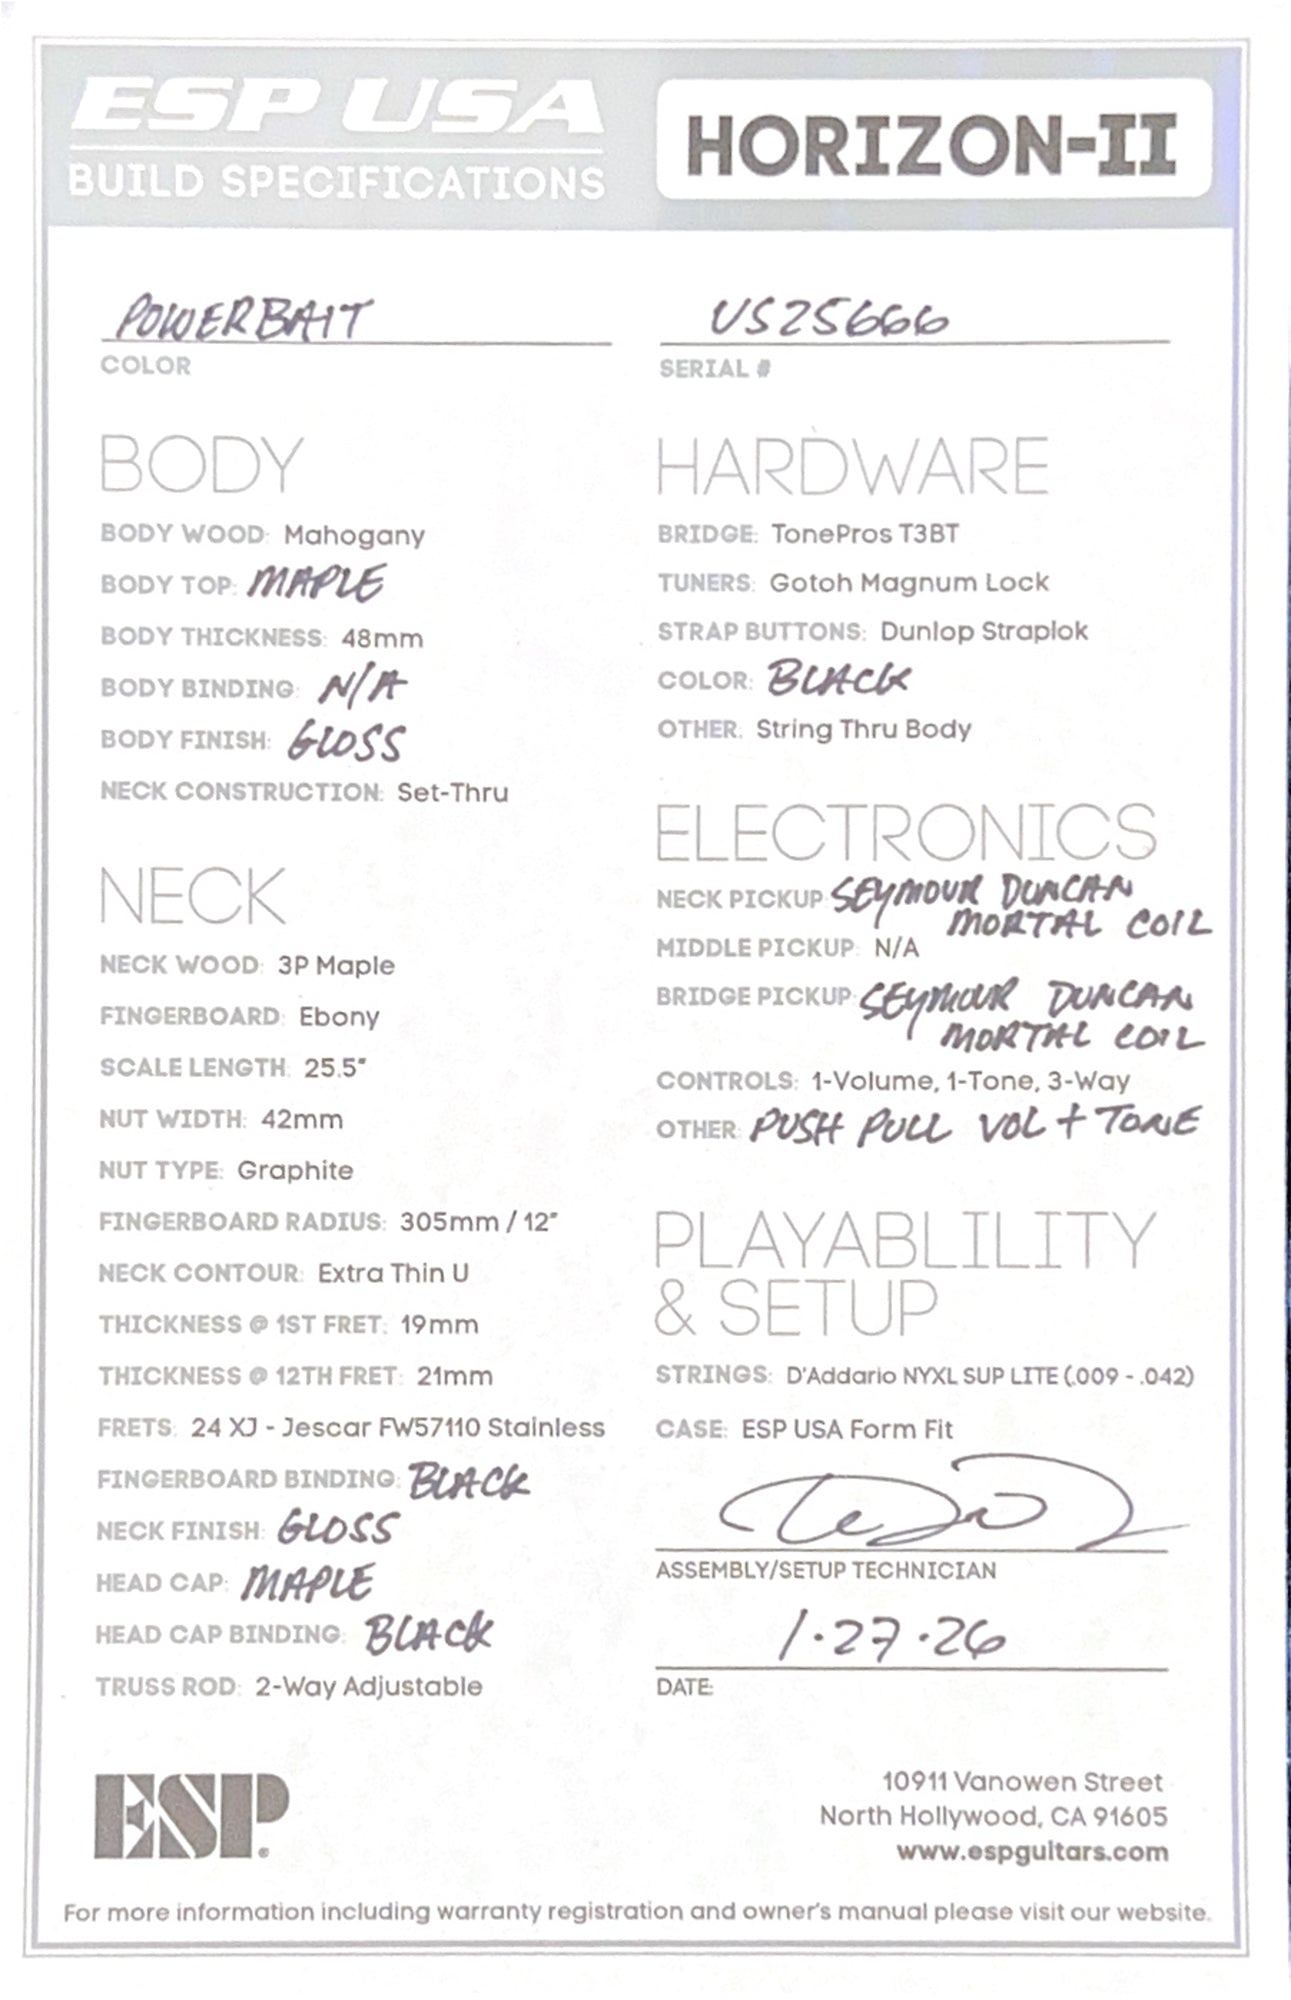 ESP USA
BUILD SPECIFICATIONS
HORIZON-II
POWERBAIT
COLOR
US25666
SERIAL #
BODY
BODY WOOD: Mahogany
BODY TOP: MAPLE
BODY THICKNESS: 48mm
BODY BINDING: N/A
BODY FINISH: GLOSS
NECK CONSTRUCTION: Set-Thru
NECK
NECK WOOD: 3P Maple
FINGERBOARD: Ebony
SCALE LENGTH: 25.5"
NUT WIDTH: 42mm
NUT TYPE: Graphite
FINGERBOARD RADIUS: 305mm / 12"
NECK CONTOUR: Extra Thin U
THICKNESS @ 1ST FRET: 19mm
THICKNESS @ 12TH FRET: 21mm
FRETS: 24 XJ - Jescar FW57110 Stainless
FINGERBOARD BINDING: BLACK
NECK FINISH: GLOSS
HEAD CAP: MAPLE
HEAD CAP BINDING: BLACK
TRUSS ROD: 2-Way Adjustable
HARDWARE
BRIDGE: TonePros T3BT
TUNERS: Gotoh Magnum Lock
STRAP BUTTONS: Dunlop Straplok
COLOR: BLACK
OTHER: String Thru Body
ELECTRONICS
NECK PICKUP: SEYMOUR DUNCAN
MORTAL COIL
MIDDLE PICKUP: N/A
BRIDGE PICKUP: SEYMOUR DUNCAN
MORTAL COIL
CONTROLS: 1-Volume, 1-Tone, 3-Way
OTHER: PUSH PULL VOL + TONE
PLAYABLILITY
& SETUP
STRINGS: D'Addario NYXL SUP LITE (.009 - .042)
CASE: ESP USA Form Fit
ASSEMBLY/SETUP TECHNICIAN
1.27.26
DATE:
ESP
10911 Vanowen Street
North Hollywood, CA 91605
www.espguitars.com
For more information including warranty registration and owner's manual please visit our website.